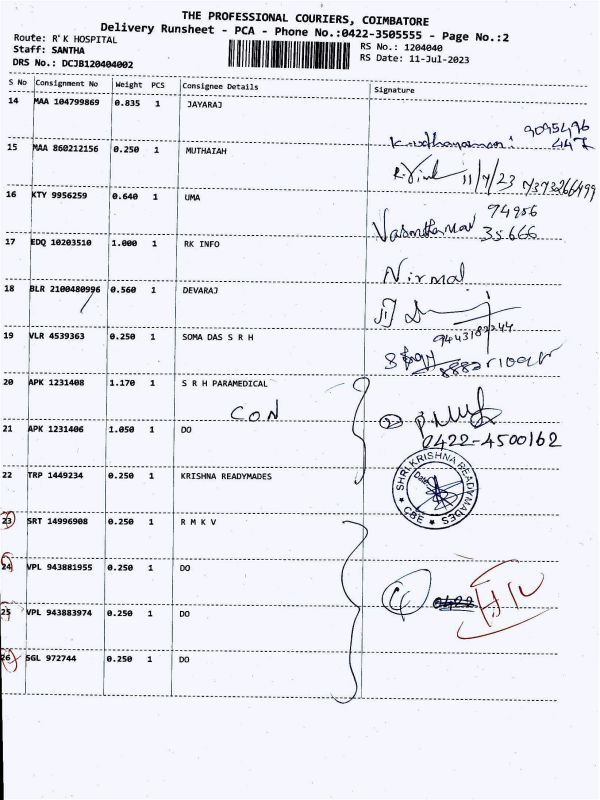 THE PROFESSIONAL COURIERS, COIMBATORE
Delivery Runsheet - PCA - Phone No.:0422-3505555 - Page No.:2
Route: R'K HOSPITAL
Staff: SANTHA
DRS No.: DCJB120404002
RS No.: 1204040
RS Date: 11-Jul-2023
S No Consignment No Weight PCS Consignee Details Signature
14 MAA 104799869 0.835 1 JAYARAJ
9095496
447
15 MAA 860212156 0.250 1 MUTHAIAH
11/7/23 7373266499
16 KTY 9956259 0.640 1 UMA
94956
35666
17 EDQ 10203510 1.000 1 RK INFO
Nirmal
18 BLR 2100480996 0.560 1 DEVARAJ
9443182244
19 VLR 4539363 0.250 1 SOMA DAS S R H
20 APK 1231408 1.170 1 S R H PARAMEDICAL
CON
2
21 APK 1231406 1.050 1 DO
0422-4500162
22 TRP 1449234 0.250 1 KRISHNA READYMADES
SHRI KRISHNA READYMADES
CBE
23 SRT 14996908 0.250 1 R M K V
24 VPL 943881955 0.250 1 DO
4 0422
25 VPL 943883974 0.250 1 DO
26 SGL 972744 0.250 1 DO